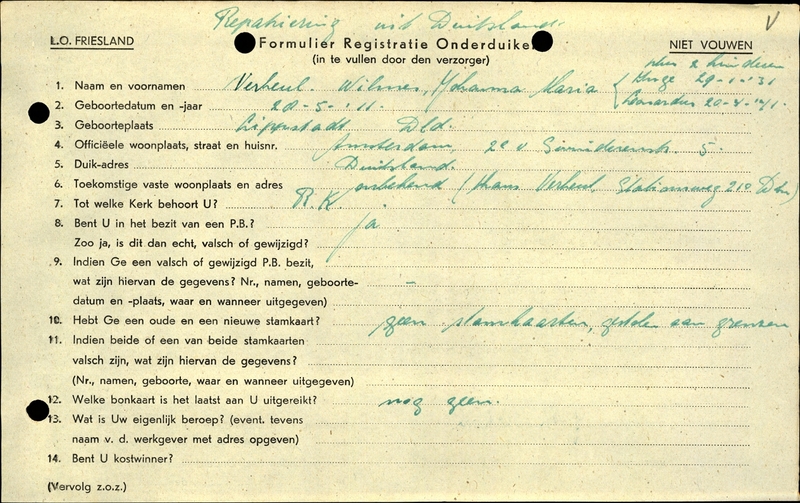 Repatriering uit Duitsland. V
L.O. FRIESLAND
Formulier Registratie Onderduiker
NIET VOUWEN
(in te vullen door den verzorger)
plus 2 kinderen
1. Naam en voornamen Verheul - Wilmes, Johanna Maria 29-1-'31
2. Geboortedatum en -jaar 20-5-'11. Leonardus
3. Geboorteplaats Lippstadt Dld.
4. Officiëele woonplaats, straat en huisnr. Amsterdam, 2e v. 5.
5. Duik-adres Duitsland.
6. Toekomstige vaste woonplaats en adres onbekend (thans Verheul, Stationsweg 210
7. Tot welke Kerk behoort U? R.K.
8. Bent U in het bezit van een P.B.? ja
Zoo ja, is dit dan echt, valsch of gewijzigd?
9. Indien Ge een valsch of gewijzigd P.B. bezit,
wat zijn hiervan de gegevens? Nr., namen, geboorte- -
datum en -plaats, waar en wanneer uitgegeven)
10. Hebt Ge een oude en een nieuwe stamkaart? geen stamkaarten, aan grenzen
11. Indien beide of een van beide stamkaarten
valsch zijn, wat zijn hiervan de gegevens?
(Nr., namen, geboorte, waar en wanneer uitgegeven)
12. Welke bonkaart is het laatst aan U uitgereikt? nog geen.
13. Wat is Uw eigenlijk beroep? (event. tevens
naam v. d. werkgever met adres opgeven)
14. Bent U kostwinner?
(Vervolg z.o.z.)